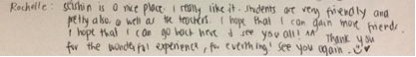 Rochelle: seishin is a nice place. I really like it. students are very friendly and
pretty also. as well as the teachers. I hope that I can gain more friends
I hope that I can go back here & see you all! ^^ Thank you
for the wonderful experience, for everything! see you again.